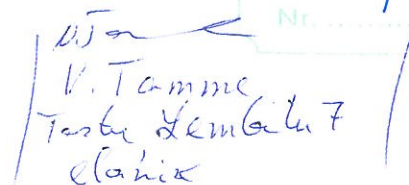 Nr.
V. Tamme
Tartu Lembitu 7
elanik